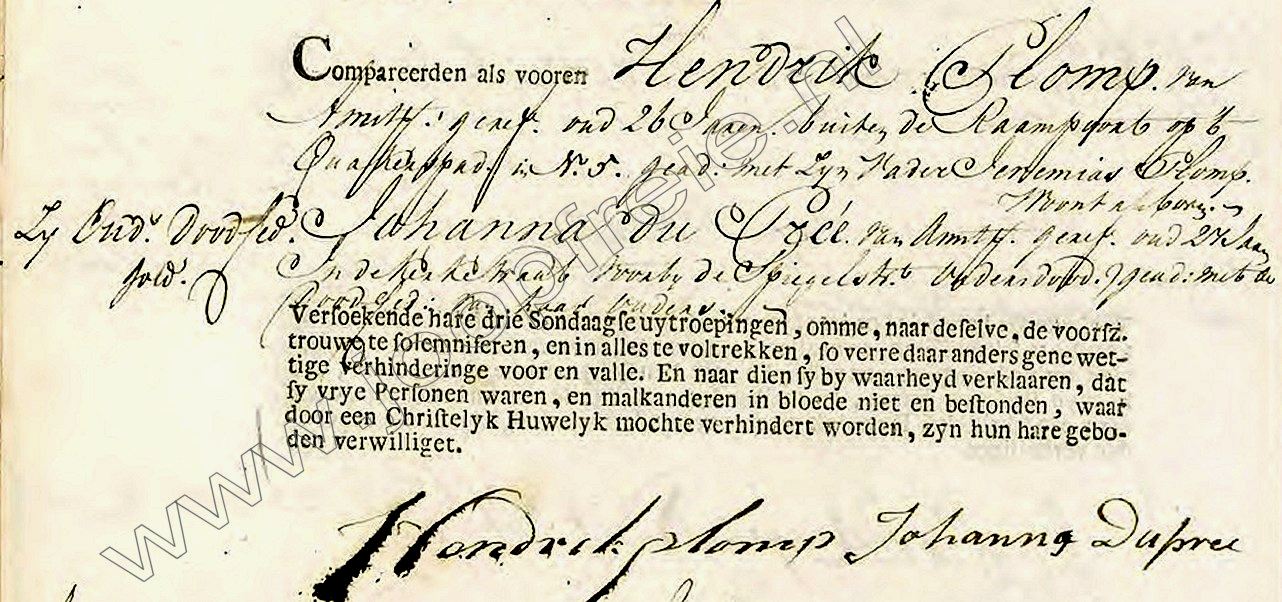 Compareerden als vooren Hendrik Plomp. van
Amstt: geref. oud 26 Jaren. buiten de Raampoort op 't
Quakerspad. in No. 5. gead: met Zyn Vader Jeremias Plomp.
Zy Oud.s doodced.
gold.
Johanna du Préé. van Amstt. geref. oud 27 Jaar
In de Kerkstraat by de Spiegelstr.t Ouders dood. gead: met de
dood ced: van haar ouders.
Versoekende hare drie Sondaagse uytroepingen, omme, naar deselve, de voorsz.
trouwe te solemniseren, en in alles te voltrekken, so verre daar anders gene wet-
tige verhinderinge voor en valle. En naar dien sy by waarheyd verklaaren, dat
sy vrye Personen waren, en malkanderen in bloede niet en bestonden, waar
door een Christelyk Huwelyk mochte verhindert worden, zyn hun hare gebo-
den verwilliget.
Hendrik plomp Johanna Dupree
www.joopfreie.nl